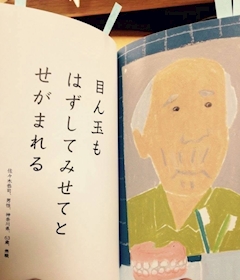 目ん玉も
はずしてみせてと
せがまれる